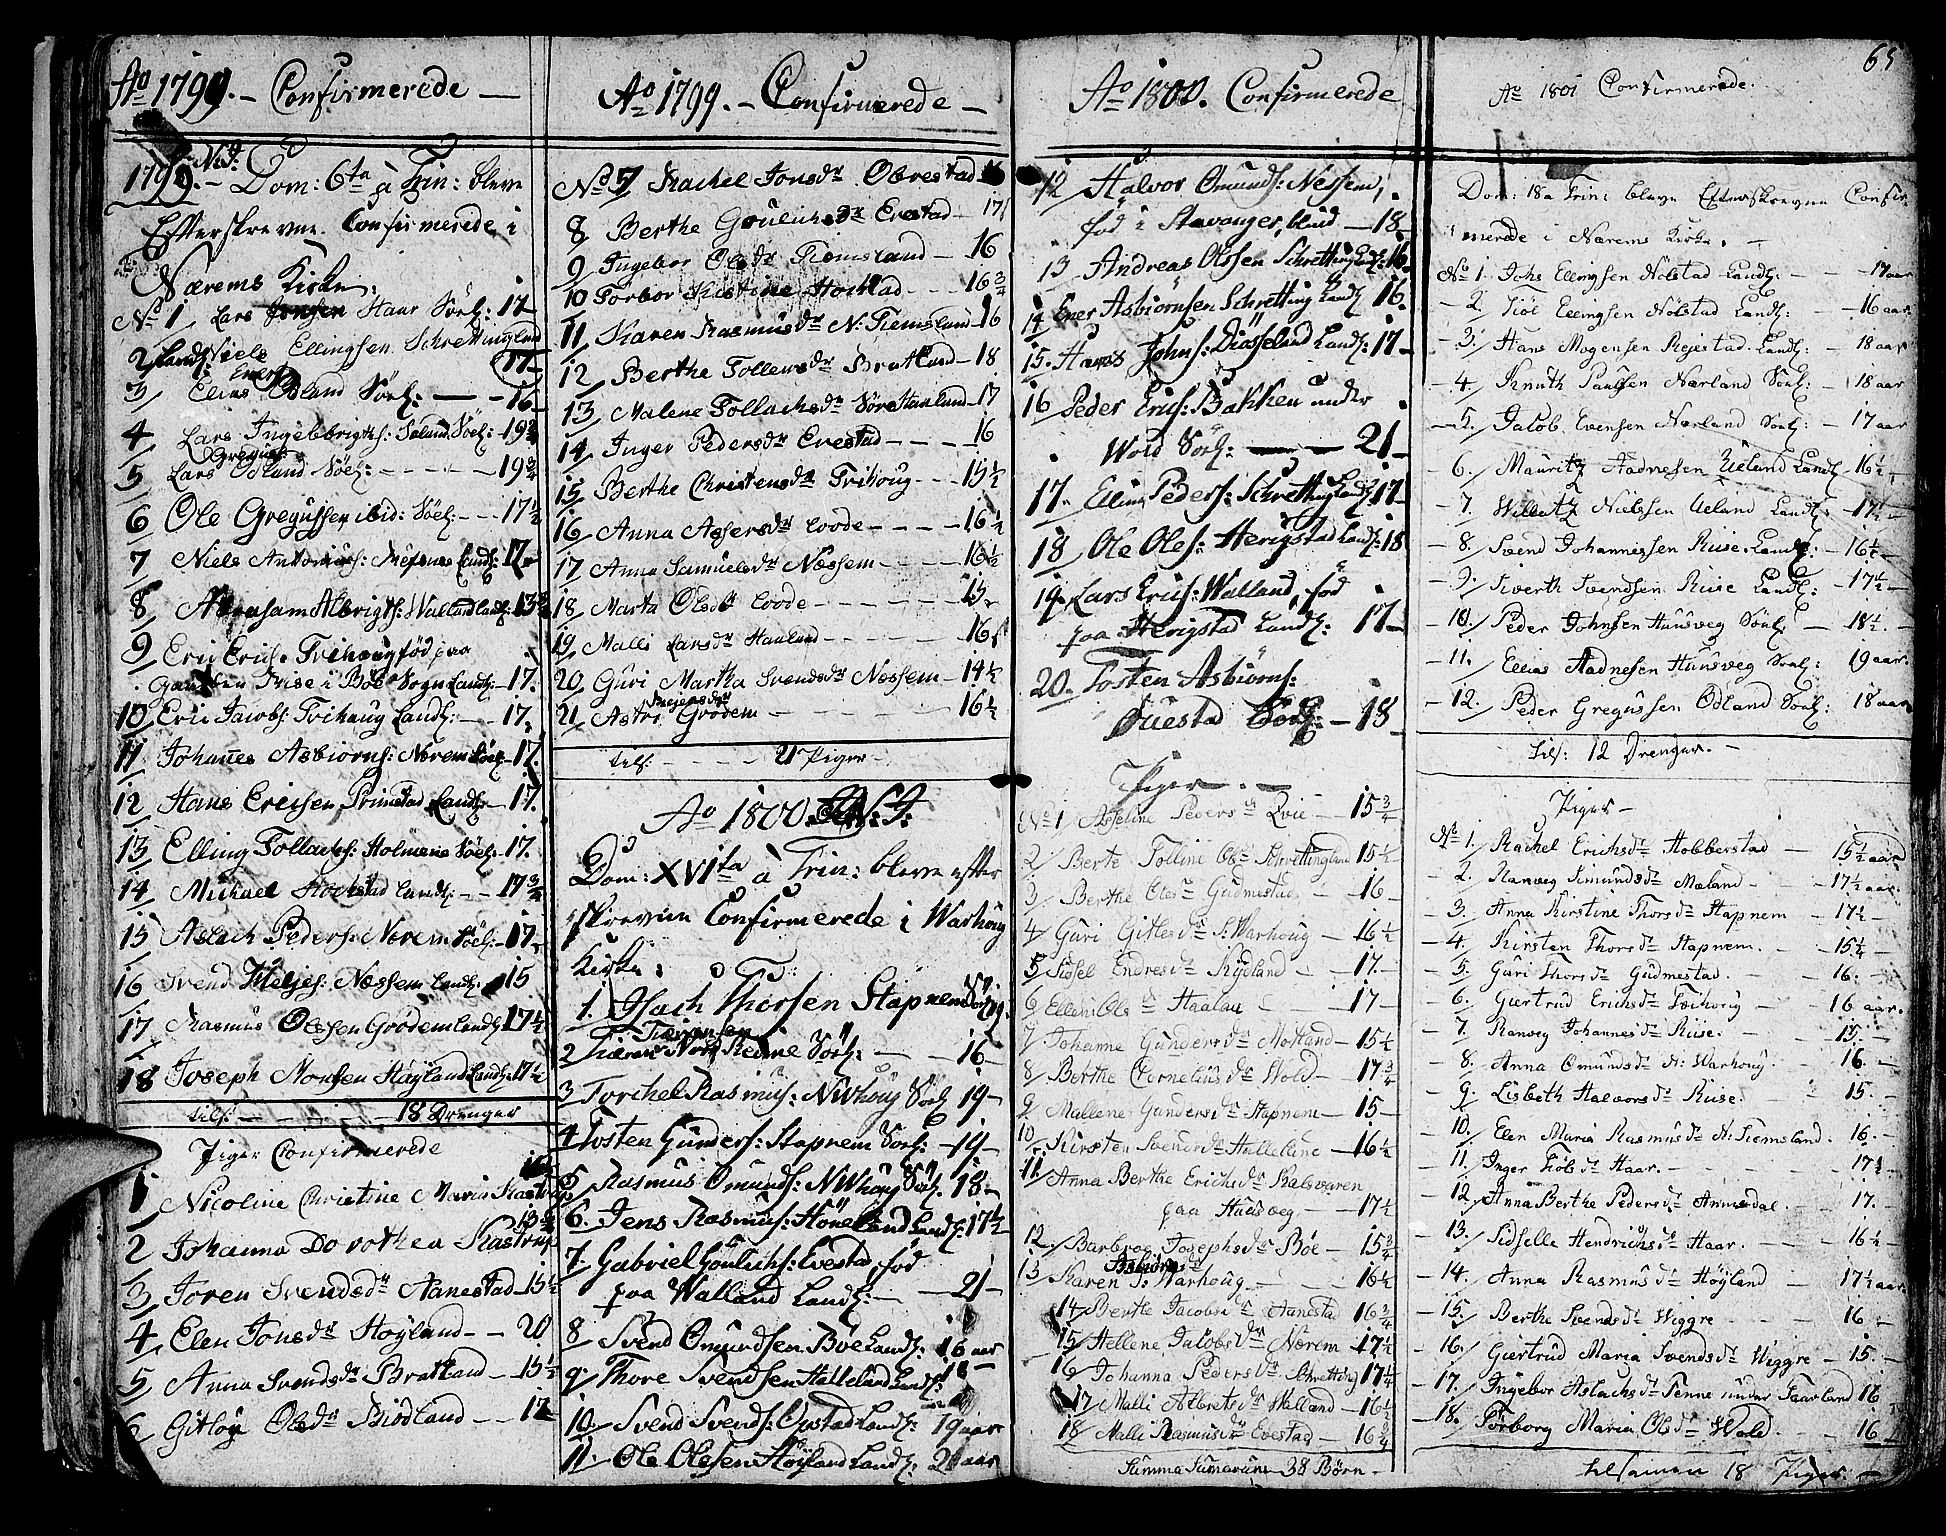 Ao 1799. – Confirmerede –
1799. N.J. – Dom: 6ta à Trin: bleve
Efterskrevne Confirmerede i
Nærems Kirke:
No 1 Lars Haar Söel: 17
2 Landf: Niels Ellingsen Schrettingland 17
3 Elias Ener: Ödland Söel: – 16
4 Lars Ingebrigths: Söel: 19
5 Lars Gregus: Ödland Söel: – – 19 3/4
6 Ole Gregussen ibid: Söel: – – 17 1/2
7 Niels Antonius: Landf: 17
8 Abraham Albrigts: Walland Landf:
9 Eric Erics: Trihoug fød paa
i Böe Sogn Landf: – 17.
10 Eric Jacobs: Trihoug Landf: – – 17.
11 Johannes Asbiörns: Nærem Söel: 17.
12 Hans Ericsen Landf: 17.
13 Elling Tollachs: Holmene Söel: 17.
14 Michael Hochstad Landf: – – 17 3/4
15 Aslach Peders: Nærem Söel: 17
16 Svend Næssem Landf: 15
17 Rasmus Olssen Grödem Landf: 17 1/2
18 Joseph Monsen Höyland Landf: 17 1/2
tils: – – – 18 Drenger
Piger Confirmerede
1 Nicoline Christine Maria
2 Johanna Dorothea Kastrup
3 Joren Svendsdr Aanestad 15 1/2
4 Elen Jonsdr Höyland – – 20
5 Anna Svendsdr Bratland – 15 1/2
6 Gitlög Olsdr Biödland – – 17
Ao 1799. – Confirmerede –
No 7 Rachel Jonsdr Obrestad 16
8 Berthe Goulichsdr Evestad – 17
9 Ingebor Olsdr Tiemsland – 16
10 Torbor Kistine Hochstad – – 16 3/4
11 Karen Rasmusdr N: Tiemsland 16
12 Berthe Tollevsdr Bratland – 18
13 Malene Tollachsdr Söre Haarland – 17
14 Inger Pedersdr Evestad – – – 16
15 Berthe Christensdr Trihoug – – 15 1/2
16 Anna Assersdr Lode – – – 16 1/2
17 Anna Samuelsdr Næssem – – 16 1/2
18 Marta Olsdr Lode – – – – 15
19 Malli Larsdr Haaland – – – 16
20 Guri Martha Svendsdr Næssem – 14 1/2
21 Astri Grödem – – – – 16 1/2
tils: – – – – 21 Piger –
Ao 1800. N: J:
Dom: XVIta à Trin: bleve efter
skrevne Confirmerede i Warhoug
Kirke:
1. Isach Thorsen Stapnem Söel: 19.
2 Tiærans Tiæransen Nord Reime Söel: – – 16
3 Torchel Rasmus: N Warhoug Söel: 19 –
4 Tosten Gunders: Stapnem Söel: – 19 –
5 Rasmus Omunds: N Warhoug Söel: 18 –
6. Jens Rasmus: Höne land Landf: 17 1/2
7. Gabriel Goulichs: Evestad fød
paa Walland Landf: – – 21 –
8 Svend Omundsen Böe Landf: 16 aar
9 Thore Svendsen Halleland Landf: 17 –
10. Svend Svends: Landf: 19 aar
11. Ole Olesen Höyland Landf: 20 aar
Ao 1800. Confirmerede
12 Halvor Omunds: Næssem,
fød i Stavanger, blind – 18 –
13 Andreas Olssen Schretting Landf: 16
14 Ener Asbiörnsen Schretting Landf: 16.
15. Hans Johns: Landf: 17 –
16 Peder Erics: Bakken under
Wold Söel: – – 21 –
17. Elling Peders: Schretting Landf: 17 –
18 Ole Oles: Herigstad Landf: 18
19 Lars Erics: Walland, fød
paa Herigstad Landf: 17 –
20. Tosten Asbiörns:
Söel: – 18
Piger. –
No 1 Asseline Pedersdr Qvie – 15 3/4
2 Berte Tolline Olsdr Schrettingland 15 1/2
3 Berthe Olesdr Gudmestad – 16 –
4 Guri Gitlesdr S: Warhoug – 16 1/2
5 Sidsel Endresdr Rydland – 17. –
6 Ellen Olsdr Haaland – 17 –
7 Johanne Gundersdr Motland – 15 1/2
8 Berthe Corneliusdr Wold – 17 3/4
9 Mallene Gundersdr Stapnem – 15 –
10. Kirsten Svendsdr Hallelane – 16 1/2
11. Anna Berthe Erichsdr Kalsvaren
paa Huusveg – 17 1/2
12. Barbroe Josephsdr Böe – 15 3/4
13 Karen S: Warhoug – – 16 1/2
14 Berthe Jacobsdr Aanestad 16 3/4
15 Hellene Jacobsdr Nærem – 17 1/2
16 Johanna Pedersdr Schretting 17 1/4
17 Malli Albretsdr Walland – 16 1/2
18 Malli Rasmusdr Evestad – 16 3/4
Summa Sumarum 38 Börn –
65
Ao 1801 Confirmerede.
Dom: 18 a Trin: bleve Efterskrevne Confir
merede i Nærems Kirke. –
No 1. Johs Ellingsen Nolstad Landf: – – 17 aar
2. Tiöl Ellingsen Nolstad Landf: – 16 aar
3. Hans Mogensen Rejestad Landf: – 18 aar
4 Knuth Paulsen Nærland Söel: – 18 aar
5. Jacob Evensen Nærland Söel: – 17 aar
6. Mauritz Aadnesen Ueland Landf: 16 1/2 –
7. Willatz Nielssen Ueland Landf: – 17 1/2 –
8. Svend Johannessen Riise Landf: – 16 1/2 –
9. Siverth Svendsen Riise Landf: – 17 1/2 –
10. Peder Johnsen Huusveg Söel: – 18 1/2. –
11. Ellias Aadnesen Huusveg Söel: 19 aar.
12. Peder Gregussen Ödland Söel: 18 aar
tils: 12 Drenger. –
Piger –
No 1. Rachel Erichsdr Hobberstad – 15 1/2 aar
2. Ranveg Simundsdr Mæland – – 17 1/2 aar.
3. Anna Kirstine Thorsdr Stapnem – 17 1/2 –
4. Kirsten Thorsdr Stapnem. – – 15 1/4 –
5. Guri Thorsdr Gudmestad. – – 16. –
6. Giertrud Erichsdr Trihoug – 16 aar.
7. Ranveg Johannesdr Riise. – – 15. –
8. Anna Omundsdr N: Warhoug. – 16. –
9. Lisbeth Halvorsdr Riise. – – 15. –
10. Elen Maria Rasmusdr N: Tiemsland. 16. –
11. Inger Tiölsdr Haar. – – – 17 1/2 –
12. Anna Berthe Pedersdr Aunsedal. – 17. –
13. Sidselle Hendrichsdr Haar. – – 16 1/2 –
14. Anna Rasmusdr Höyland – 17 1/2 aar
15. Berthe Svendsdr Wiggre – – 16. –
16. Giertrud Maria Svendsdr Wiggre – 15. –
17. Ingebor Aslachsdr Tenne under Taarland 16
18. Torborg Maria Olsdr Wold. – – 16
tilsamen 18 Piger. –